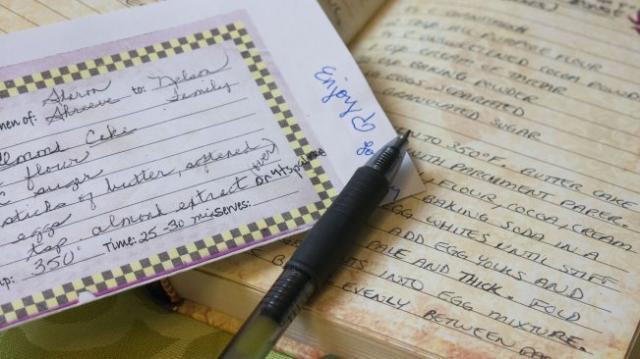 Sharon
Shreeve to: Nelson
Family
men of:
lemond Cake
flour
sugar
sticks of butter, softened
eggs
tsp almond extract
Time: 25-30 min serves:
350°
Enjoy
ALL PURPOSE FLOUR
UNSWEETENED COCOA POWD
CUP CREAM
BAKING POWDER
EGGS, SEPARATED
GRANULATED SUGAR
TO 350°F. BUTTER CAKE
WITH PARCHMENT PAPER.
FLOUR COCOA, CREAM
BAKING SODA IN A
EGG WHITES UNTIL STIFF
ADD EGG YOLKS AND
PALE AND THICK. FOLD
INTO EGG MIXTURE.
EVENLY BETWEEN